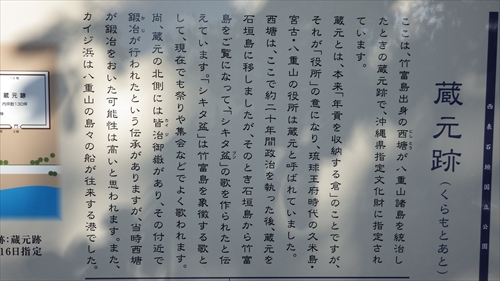 西表石垣国立公園
蔵元跡(くらもとあと)
ここは、竹富島出身の西塘が、八重山諸島を統治し
にしとう
たときの蔵元跡で、沖縄県指定文化財に指定され
ています。
蔵元とは、本来「年貢を収納する倉」のことですが、
それが「役所」の意になり、琉球王府時代の久米島・
宮古・八重山の役所は蔵元と呼ばれていました。
西塘は、ここで約二十年間政治を執った後、蔵元を
石垣島に移しましたが、そのとき石垣島から竹富
島をご覧になって、「シキタ盆」の歌を作られたと伝
えています。「シキタ盆」は竹富島を象徴する歌と
して、現在でも祭りや集会などでよく歌われます。
尚、蔵元の北側には皆治御嶽があり、その付近で
鍛冶が行われたという伝承がありますが、当時西塘
が鍛冶をおいた可能性は高いと思われます。また、
カイジ浜は八重山の島々の船が往来する港でした。
蔵元跡
内坪数130坪
跡:蔵元跡
16日指定